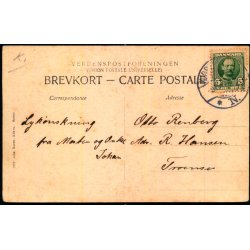 VERDENSPOSTFORENINGEN
(UNION POSTALE UNIVERSELLE)
BREVKORT – CARTE POSTALE
Correspondance
Adresse
Lykønskning
fra Merken og Onkel
Johan
Otto Renberg
Adr. R. Hansen
Tromsø